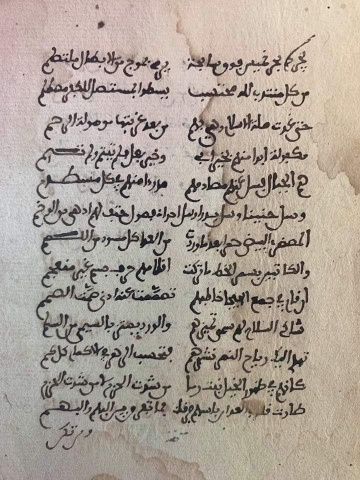 يجر بحر خميس فوق سابحة يرمي بموج من الابطال ملتطم
من كل منتدب لله محتسب يسطو بمستصل للكفر مصطلم
حتى غدت ملة الاسلام وهي بهم من بعد غربتها موصولة الرحم
مكفولة ابدا منهم بخير اب وخير بعل فلم تيتم ولم تئم
هم الجبال فسل عنهم مصادمهم ماذا را منهم في كل مصطدم
وسل حنينا وسل بدرا وسل احدا فصول حتف لهم ادهى من الوخم
المصدري البيض حمرا بعد ما وردت من العدا كل مسود من اللمم
والكاتبين بسمر الخط ما تركت اقلامهم حرف جسم غير منعجم
ان قام في جمع الهيجا خاطبهم تصممت عنه اذني صمة الصمم
شاكي السلاح لهم سيمى تميزهم والورد يمتز بالسيمى من السلم
تهدي اليك رياح النصر نشرهم فتحسب الزهر في الاكمام كل كم
كانهم في ظهور الخيل نبت ربا من شدت الحزم لا من شدت الحزم
طارت قلوب العدا من باسهم فرقا فما تفرق بين البهم والبهم
ومن تكن